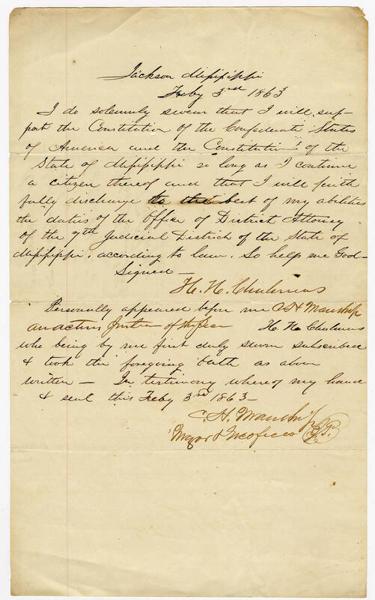 Jackson Mississippi
Feby 3rd 1863
I do solemnly swear that I will sup-
port the Constitution of the Confederate States
of America and the Constitution of the
State of Mississippi so long as I continue
a citizen thereof and that I will faith
fully discharge to the best of my abilities
the duties of the Office of District Attorney
of the 7th Judicial District of the State of
Mississippi, according to law. So help me God-
Signed -
H. H. Chalmers
Personally appeared before me C H Manship
an acting Justice of the Peace H. H. Chalmers
who being by me first duly sworn subscribed
& took the foregoing oath as above
written - In testimony whereof my hand
& seal this Feby 3rd 1863 -
C. H. Manship
Mayor & Exofficio J.P.